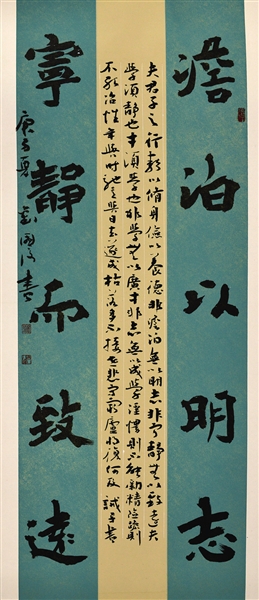 澹泊以明志
夫君子之行靜以脩身儉以養德非澹泊無以明志非寧靜無以致遠夫
學須靜也才須學也非學無以廣才非志無以成學淫慢則不能勵精險躁則
不能治性年與時馳意與日去遂成枯落多不接世悲守窮廬將復何及 誡子書
寧靜而致遠
庚子夏 書